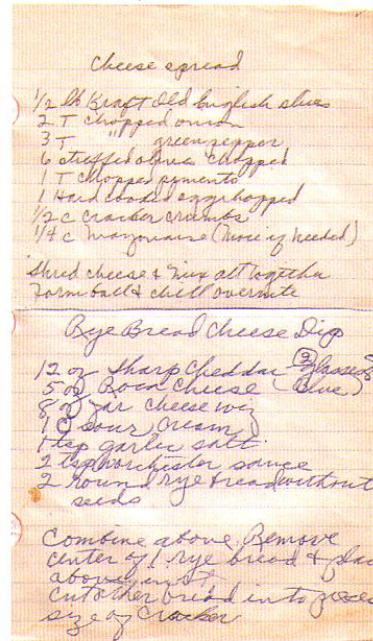 Cheese spread
1/2 lb Kraft Old English slices
2 T chopped onion
3 T " green pepper
6 stuffed olives chopped
1 T chopped pimento
1 Hard cooked egg chopped
1/2 C cracker crumbs
1/4 C Mayonaise (more if needed)
Shred cheese & mix all together
Form ball & chill overnite
Rye Bread Cheese Dip
12 oz Sharp Cheddar
5 oz Roca Cheese (Blue)
8 oz Jar Cheese wiz
1 C sour cream
1 tsp garlic salt
2 tsp sauce
2 round rye bread without
seeds
Combine above. Remove
center of 1 rye bread & place
above in it.
Cut other bread into pieces
size of cracker